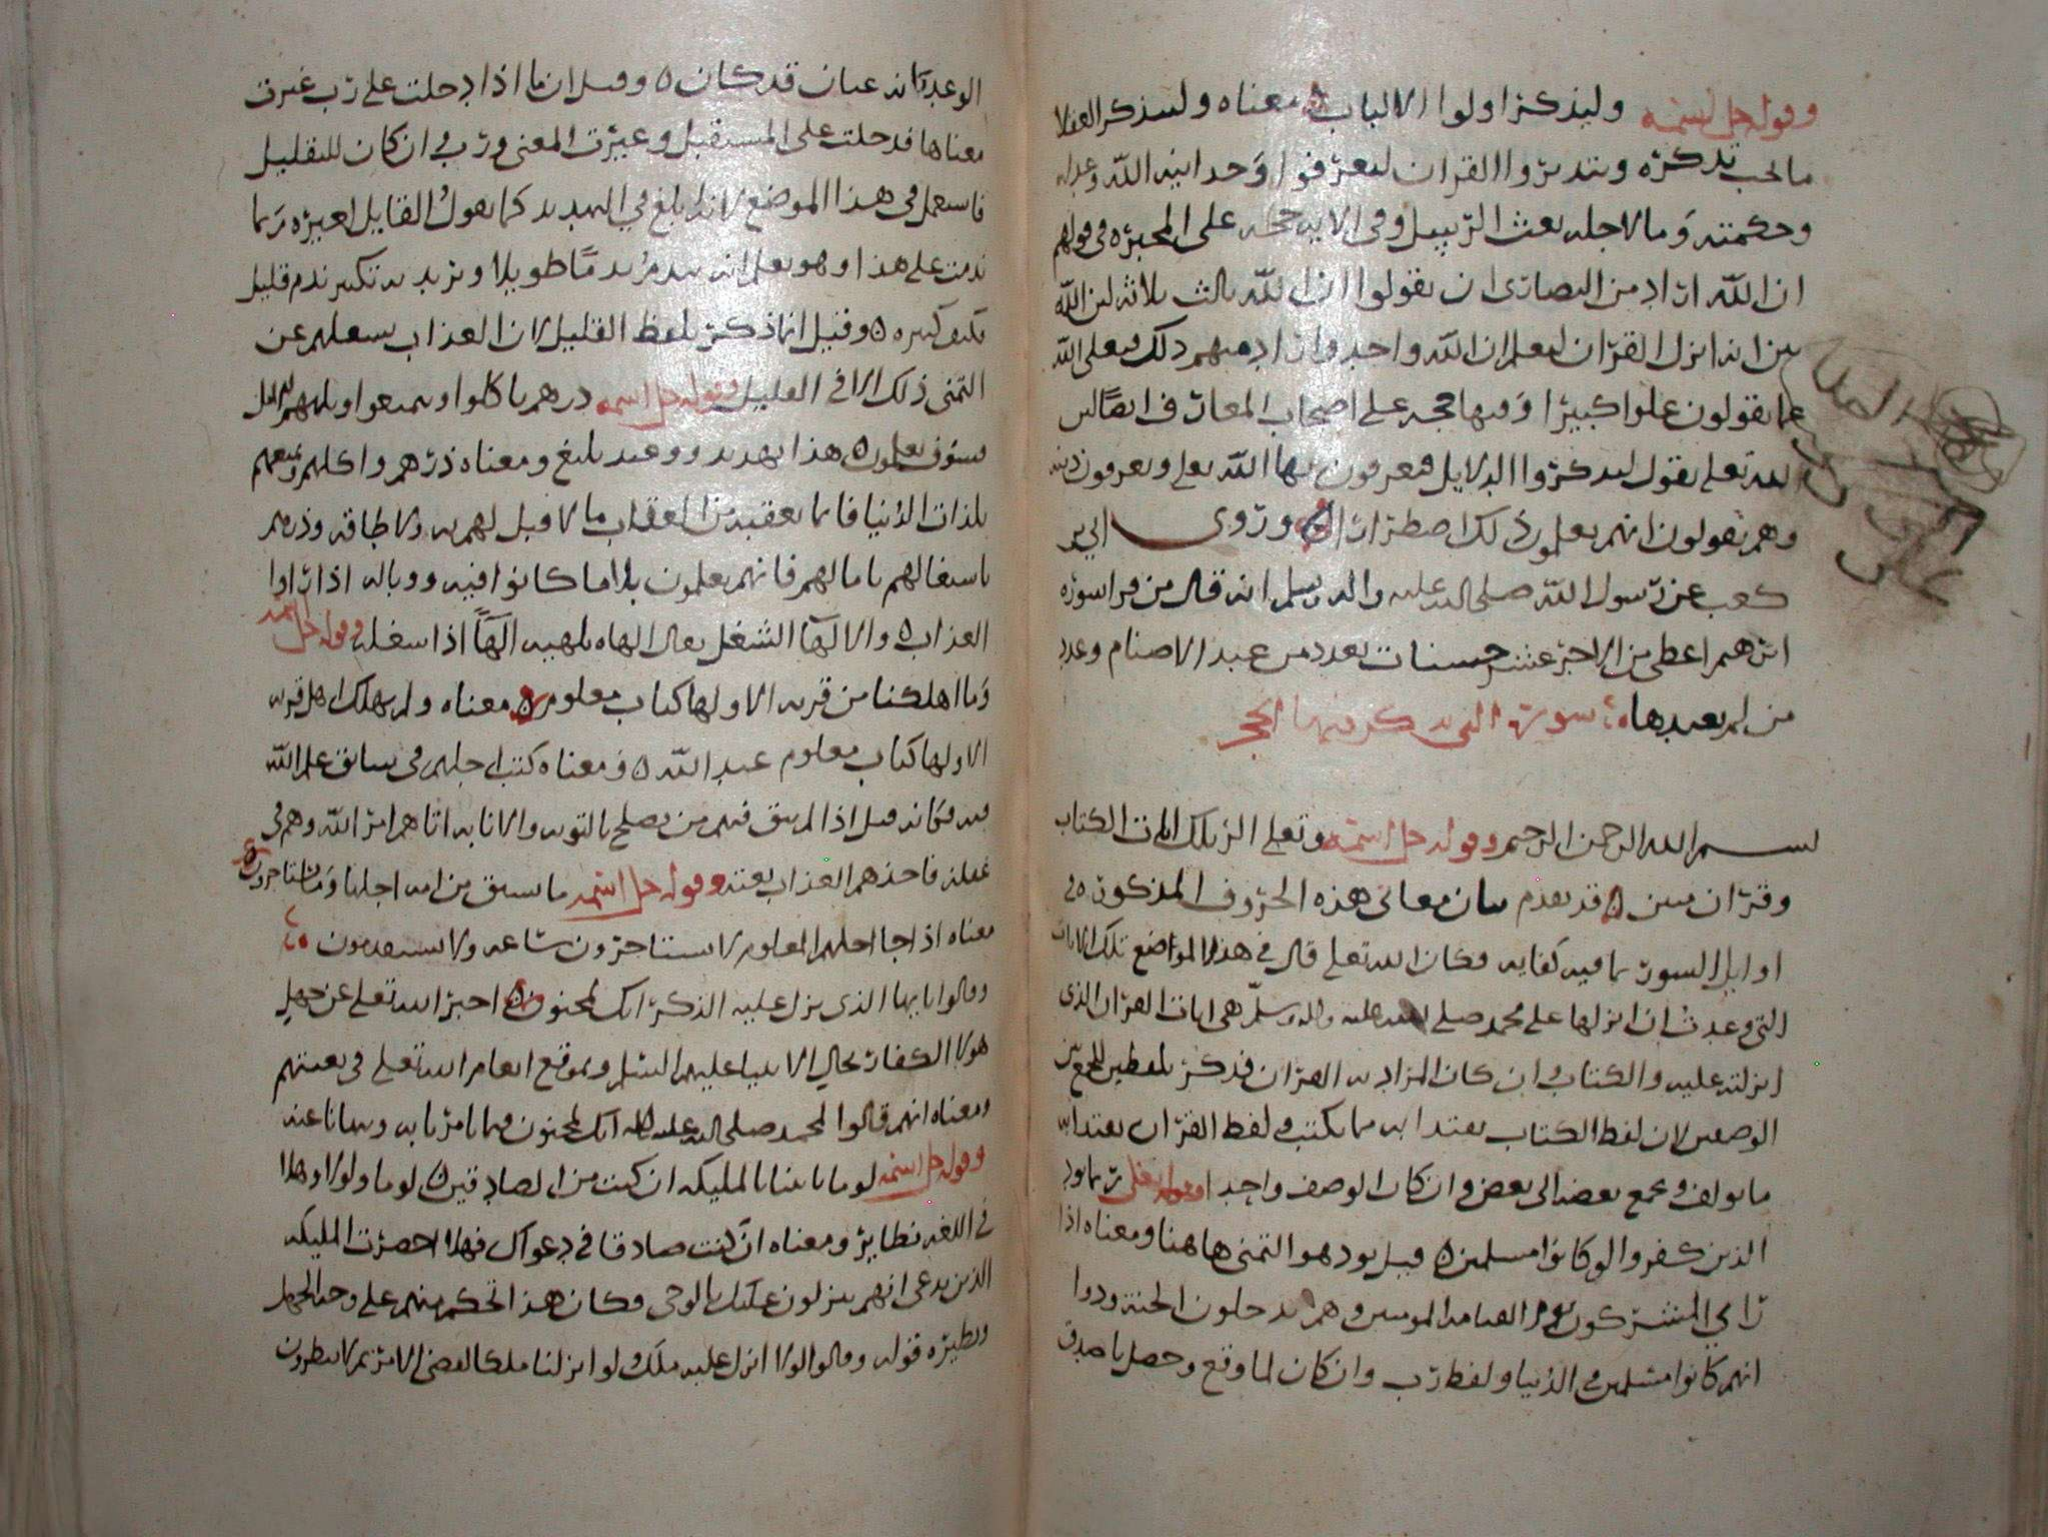 وقوله جل اسمه وليذكر اولوا الالباب ه معناه وليتذكر العقلا
ما يجب تذكره ويتدبروا القران ليعرفوا وحدانية الله وعدله
وحكمته وما لاجله بعث الرسل وفي الاية حجة على المجبرة في قولهم
ان الله اراد من النصارى ان يقولوا ان الله ثالث ثلاثة لان الله
بين انه انزل القران ليعلم ان الله واحد واراد منهم ذلك فتعلى الله
عما يقولون علوا كبيرا وفيها حجة على اصحاب المعارف ايضا لان
الله تعلى يقول ليذكروا الدلايل فيعرفون بها الله تعلى ويعرفون دينه
وهم يقولون انهم يعلمون ذلك اضطرارا ه وروى ابي بن
كعب عن رسول الله صلى الله عليه واله وسلم انه قال من قرا سورة
ابرهيم اعطي من الاجر عشر حسنات بعدد من عبد الاصنام وعدد
من لم يعبدها ه سورة التي يذكر فيها الحجر
بسم الله الرحمن الرحيم وقوله جل اسمه وتعلى الر تلك ايات الكتاب
وقران مبين ه قد تقدم بيان معاني هذه الحروف المذكورة في
اوايل السور بما فيه كفاية فكان الله تعلى قال في هذه المواضع تلك الايات
التي وعدت ان انزلها على محمد صلى الله عليه واله وسلم هي ايات القران الذي
انزلته عليه والكتاب وان كان المراد به القران فذكر بلفظين للجمع بين
الوصفين لان لفظ الكتاب يفيد انه مما يكتب ولفظ القران يفيد انه
ما يولف ويجمع بعضه الى بعض وان كان الوصف واحدا وقوله تعلى ربما يود
الذين كفروا لو كانوا مسلمين ه قيل يود هو التمني هاهنا ومعناه اذا
راي المشركون يوم القيامة المومنين وهم يدخلون الجنة ودوا
انهم كانوا مسلمين في الدنيا ولفظ رب وان كان لما وقع وحصل يا صدق
الوعد كانه عيان قد كان ه وقيل ان ما اذا دخلت على رب غيرت
معناها فدخلت على المستقبل وغيرت المعنى ورب وان كان للتقليل
فاستعمل في هذا الموضع لانه ابلغ في التهديد كما يقول القايل لغيره ربما
ندمت على هذا وهو يعلم انه يندم ندما طويلا ويريد به قليل
فكيف كثيره ه وقيل انما ذكر بلفظ القليل لان العذاب يشغلهم عن
التمني ذلك الا في القليل وقوله جل اسمه ذرهم ياكلوا ويتمتعوا ويلههم الامل
فسوف يعلمون ه هذا تهديد ووعيد بليغ ومعناه ذرهم واكلهم وتمتعهم
بلذات الدنيا فانما يعقبه من العقاب ما لا قبل لهم به ولا طاقة وذرهم
باشتغالهم بامالهم فانهم يعلمون بلا ما كانوا فيه ووباله اذا راوا
العذاب ه والالهآ الشغل يقال الهاه يلهيه الهآ اذا شغله وقوله جل اسمه
وما اهلكنا من قرية الا ولها كتاب معلوم ه معناه ولم يهلك اهل قرية
الا ولها كتاب معلوم عند الله ه ومعناه كتب اجلهم في سابق علم الله
فيه فكانه قيل اذا لم يبق فيهم من يصلح بالتوبة والانابة اتاهم امر الله وهم في
غفلة فاخذهم العذاب بغتة وقوله جل اسمه ما تسبق من امة اجلها وما يستاخرون
معناه اذا جا اجلهم المعلوم لا يستاخرون ساعة ولا يستقدمون ه
وقالوا يايها الذي نزل عليه الذكر انك لمجنون ه اخبر الله تعلى عن جهل
هولا الكفار بحال الانبيا عليهم السلم وبموقع انعام الله تعلى في بعثتهم
ومعناه انهم قالوا لمحمد صلى الله عليه واله انك لمجنون فيما تامرنا به وتنهانا عنه
وقوله جل اسمه لو ما تاتينا بالمليكة ان كنت من الصادقين ه لو ما ولولا وهلا
في اللغة نظاير ومعناه ان كنت صادقا في دعواك فهلا احضرت المليكة
الذين تدعي انهم ينزلون عليك بالوحي فكان هذا تحكم منهم على وجه الجهل
ونظيره قوله وقالوا لولا انزل عليه ملك ولو انزلنا ملكا لقضي الامر ثم لا ينظرون